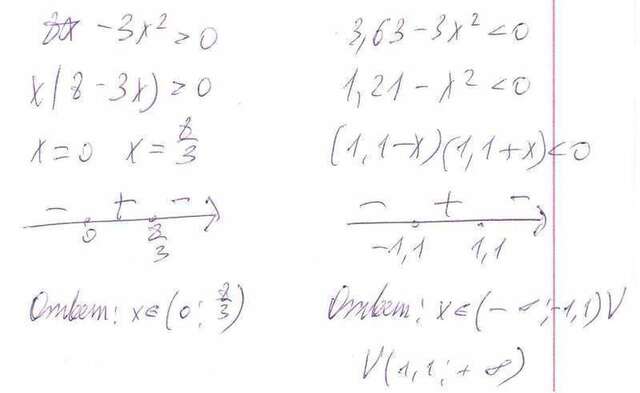 8x - 3x² > 0
x(8 - 3x) > 0
x = 0 x = 8/3
- + -
0 8/3
Ответ: x∈(0; 8/3)
3,63 - 3x² < 0
1,21 - x² < 0
(1,1-x)(1,1+x) < 0
- + -
-1,1 1,1
Ответ: x∈(-∞; -1,1)∪
∪(1,1; +∞)